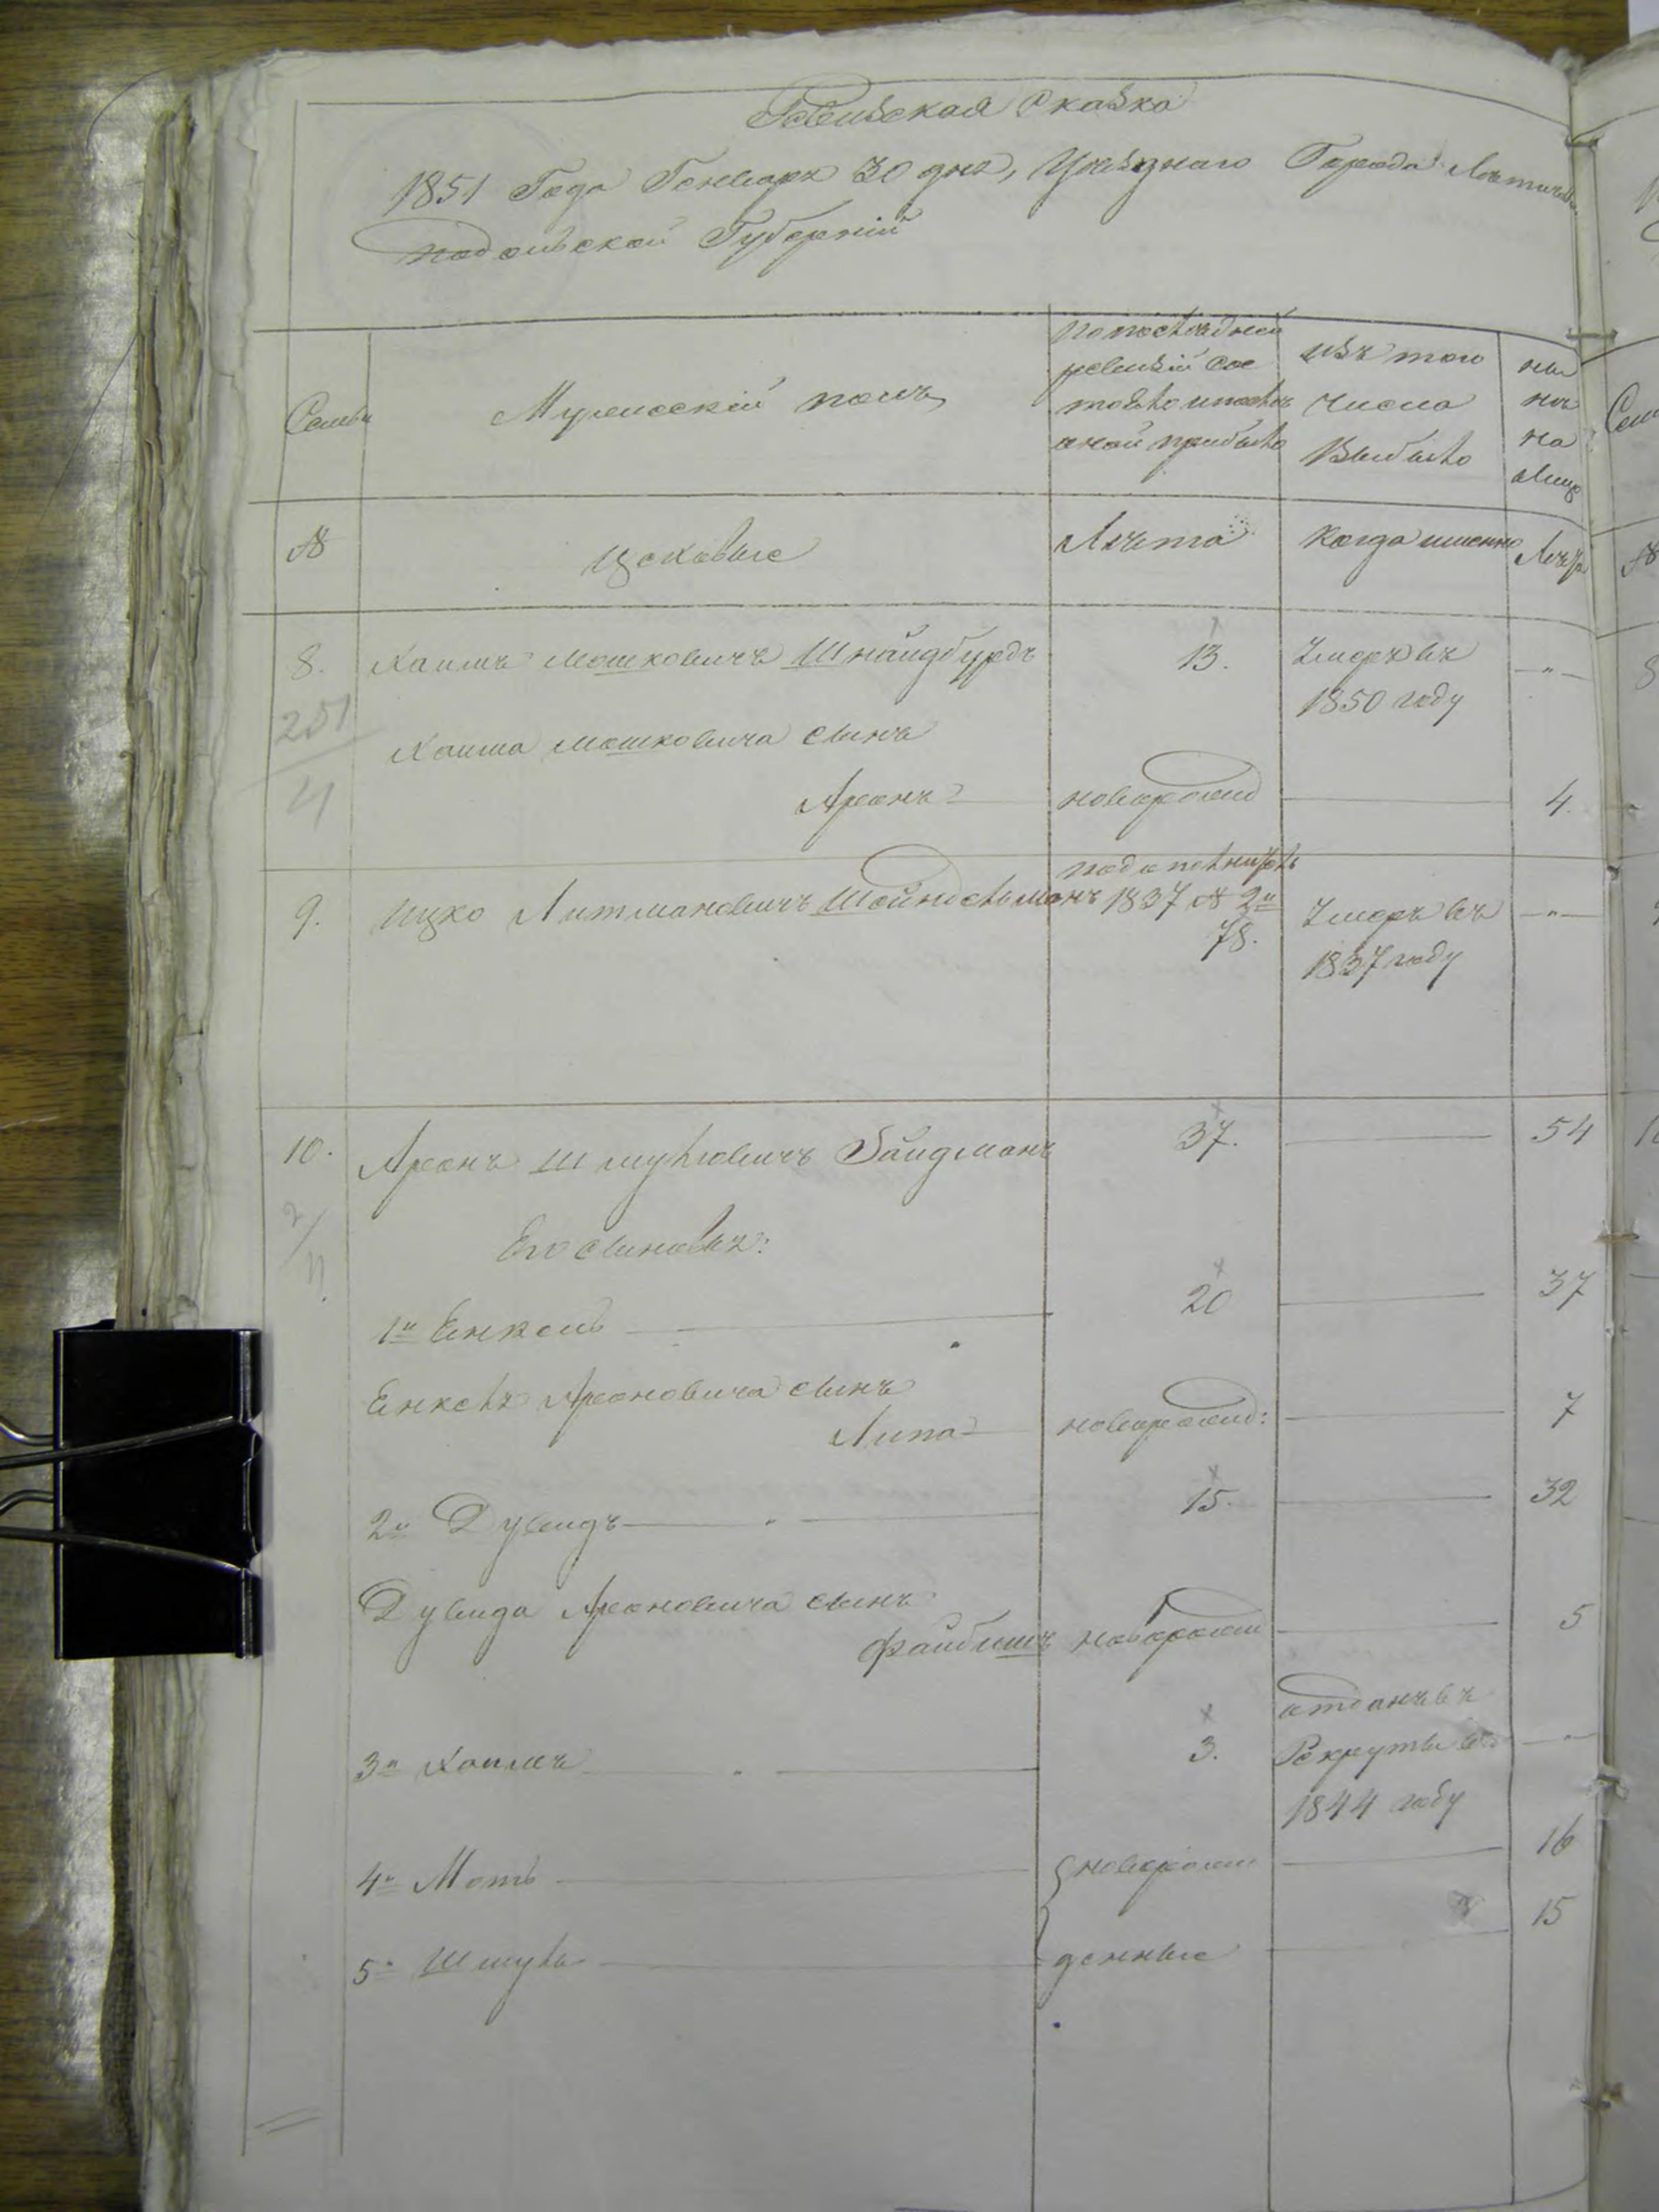 Ревизская Сказка
1851 Года Генваря 30 дня, Уѣзднаго Города Летичева
Подольской Губерніи
Семьи
Мужескій полъ
По последней
ревизіи сос
тояло и послѣ
оной прибыло
Изъ того
числа
Выбыло
ны
нѣ
на
лицо
№
Цеховые
Лѣта
Когда именно
Лѣта
8. Хаимъ Мошковичъ Шнайдбурдъ 13. Умеръ въ -"-
1850 году
251
4
Хаима Мошковича сынъ
Аронъ новорожд 4.
9. Ицко Литмановичъ Шейндельманъ 1837 № 2й Умеръ въ -"-
78. 1837 году
10. Аронъ Шмулювичъ Зайдманъ 37. 54
Его сыновья:
1й Енкель 20 37
Енкеля Ароновича сынъ
Липа новорожд: 7
2й Дувидъ " 15. 32
Дувида Ароновича сынъ
Файбишъ новорожд 5
3й Хаимъ " 3. отданъ въ
Рекруты въ -"-
1844 году
4й Моть новорож 16
5й Шмуль денные 15